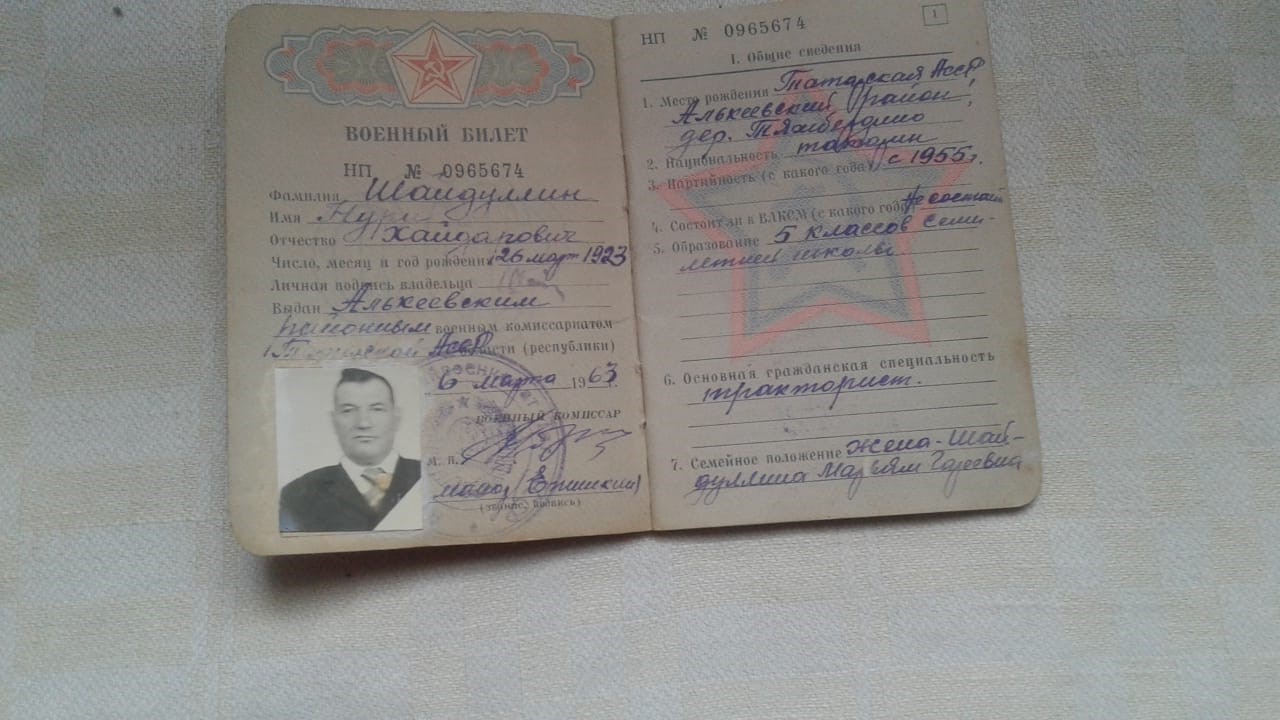 ВОЕННЫЙ БИЛЕТ
НП № 0965674
Фамилия Шайдуллин
Имя Нури
Отчество Хайдарович
Число, месяц и год рождения 26 март 1923
Личная подпись владельца
Выдан Алькеевским
районным военным комиссариатом
Татарской АССР области (республики)
6 марта 1963 г.
ВОЕННЫЙ КОМИССАР
М. П.
майор
(звание, подпись)
НП № 0965674
1
I. Общие сведения
1. Место рождения Татарская АССР
Алькеевский район,
дер.
2. Национальность татарин
3. Партийность (с какого года) с 1955 г.
4. Состоял ли в ВЛКСМ (с какого года) Не состоял
5. Образование 5 классов семи-
летней школы
6. Основная гражданская специальность
тракторист.
7. Семейное положение Жена - Шай-
дуллина Марьям Гареевна